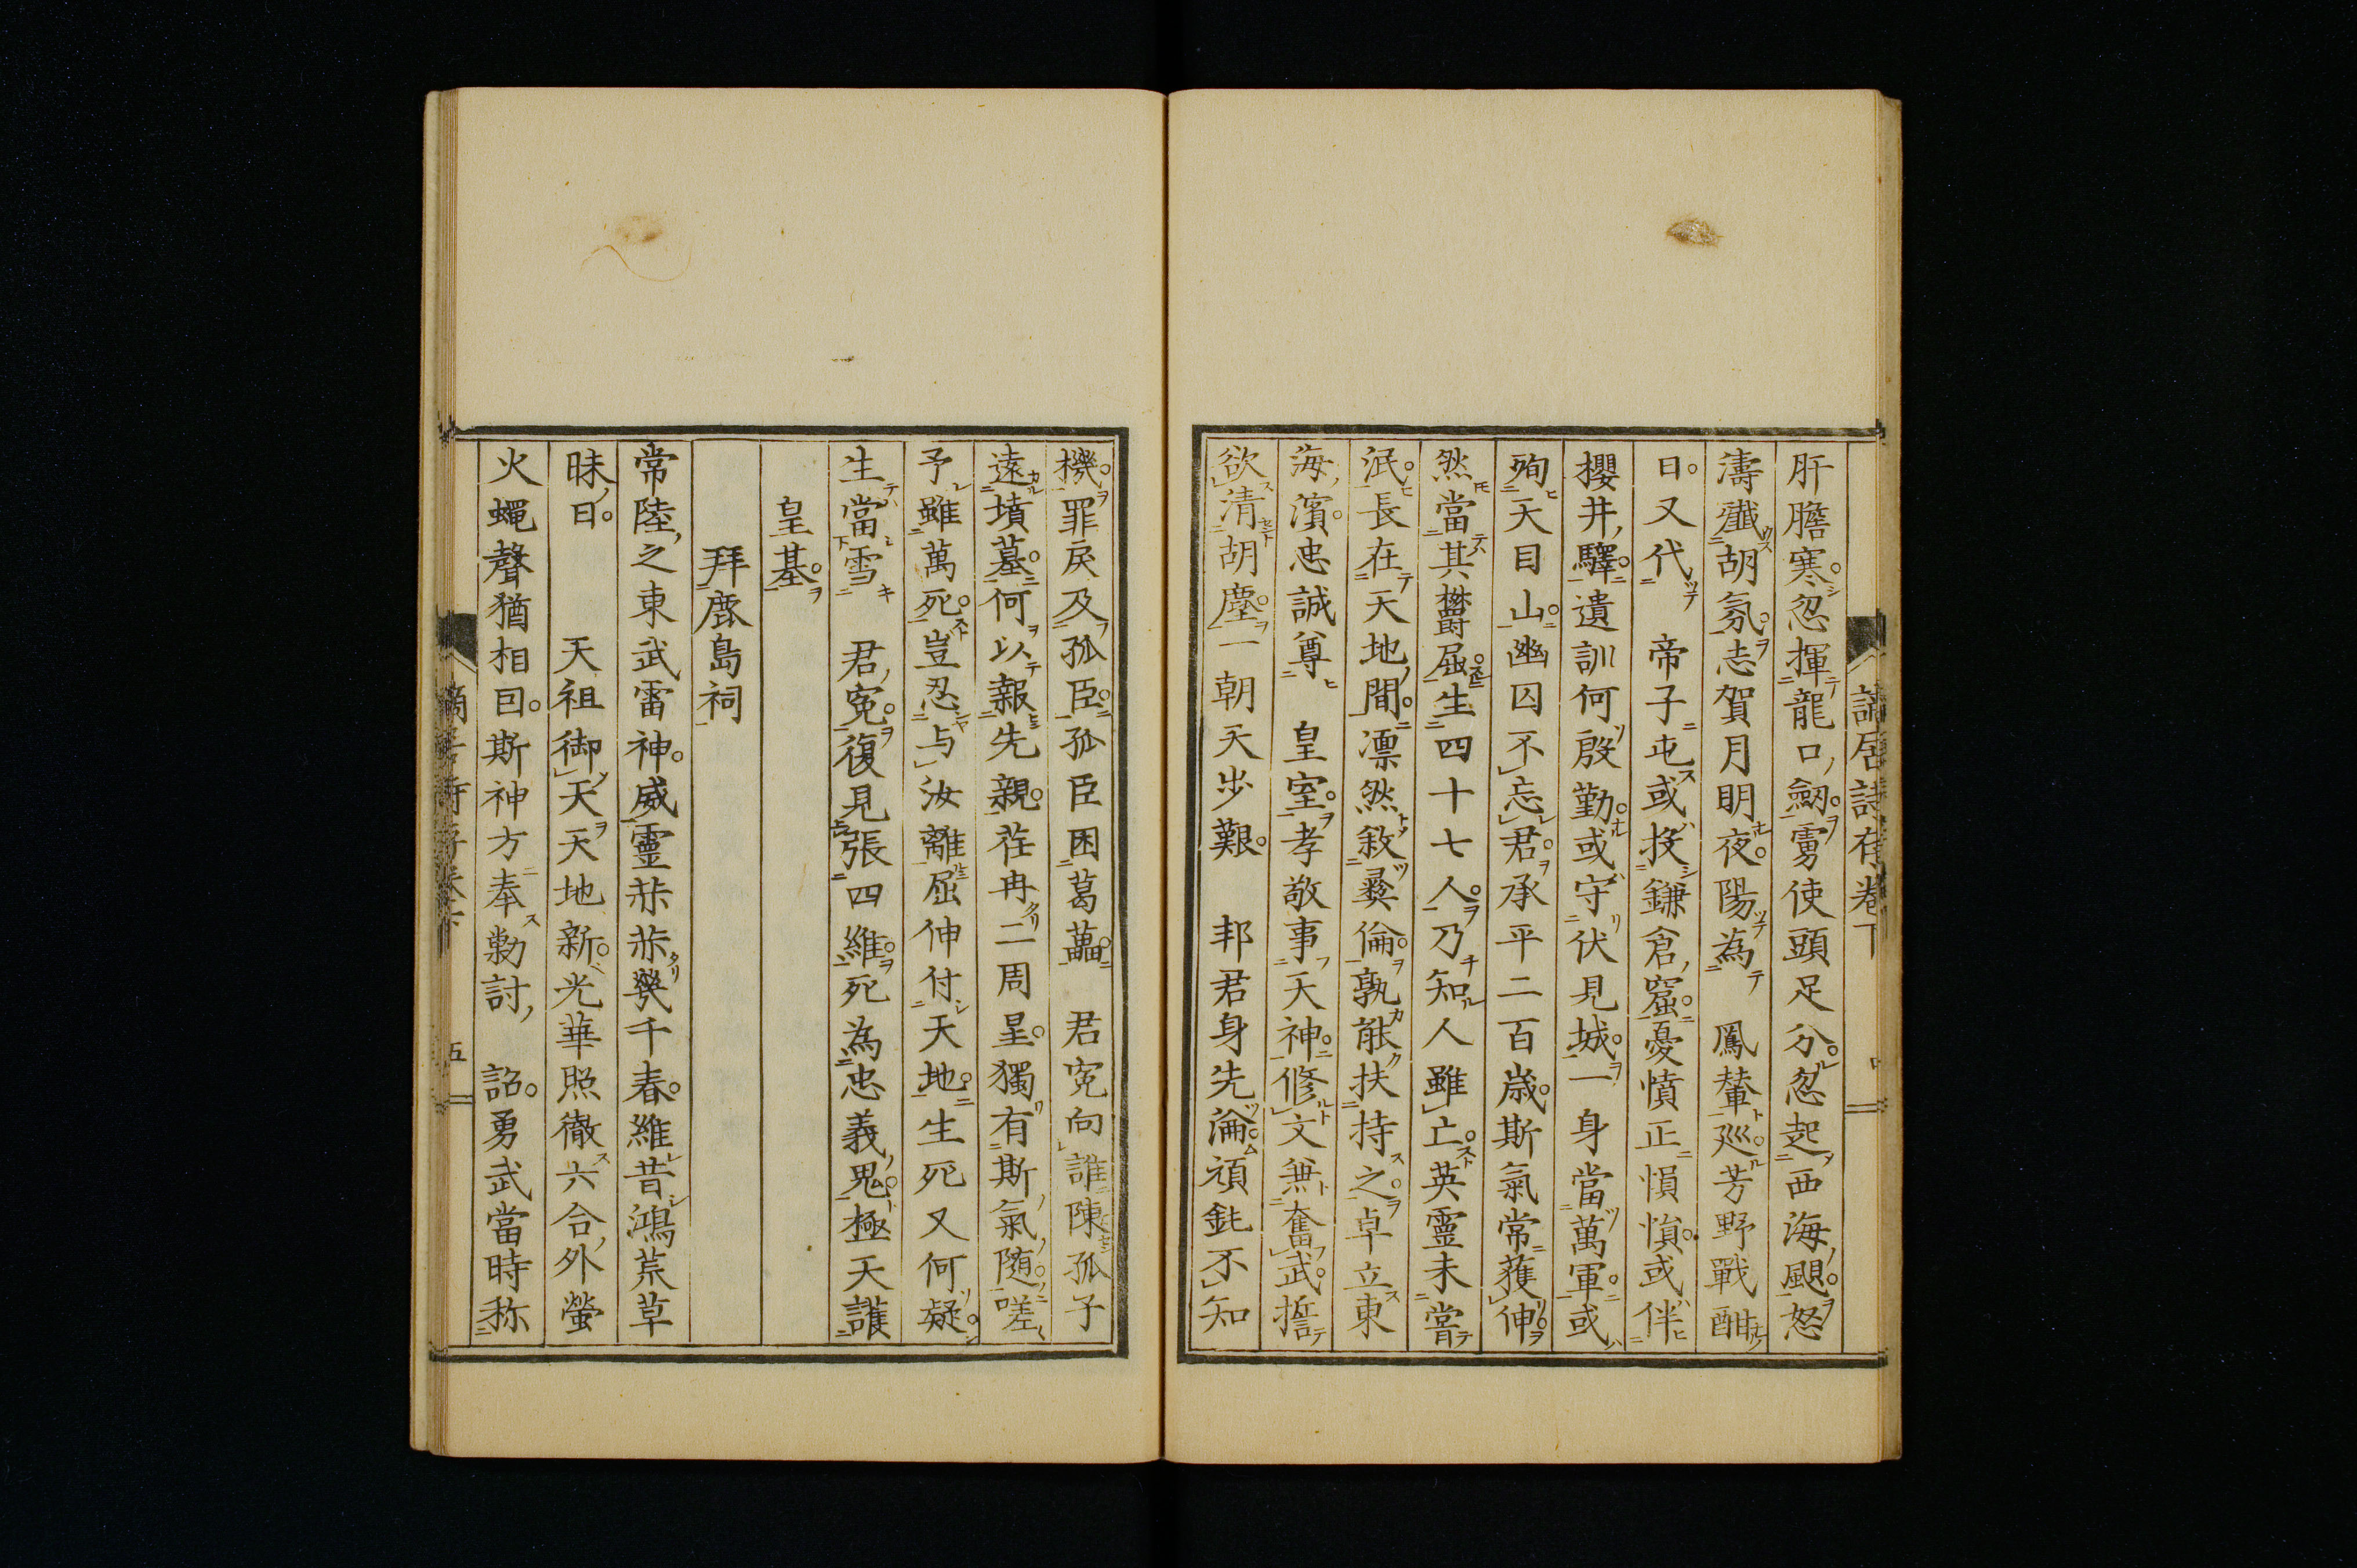 肝膽寒忽揮龍口劔虜使頭足分忽起西海颶怒
濤殲胡氛志賀月明夜陽為　鳳輦巡芳野戰酣
日又代　帝子屯或投鎌倉窟憂憤正愪愪或伴
櫻井驛遺訓何殷勤或守伏見城一身當萬軍或
殉天目山幽囚不忘君承平二百歳斯氣常獲伸
然當其欝屈生四十七人乃知人雖亡英靈未嘗
泯長在天地間凛然敘彜倫孰能扶持之卓立東
海濱忠誠尊　皇室孝敬事天神修文兼奮武誓
欲清胡塵一朝天歩艱　邦君身先淪頑鈍不知
機罪戻及孤臣孤臣困葛藟　君寃向誰陳孤子
遠墳墓何以報先親荏冉二周星獨有斯氣隨嗟
予雖萬死豈忍与汝離屈伸付天地生死又何疑
生當雪　君寃復見張四維死為忠義鬼極天護
皇基
拜鹿島祠
常陸之東武雷神威靈赫赫幾千春維昔鴻荒草
昧日　天祖御天天地新光華照徹六合外螢
火蠅聲猶相囙斯神方奉勅討　詔勇武當時称
五